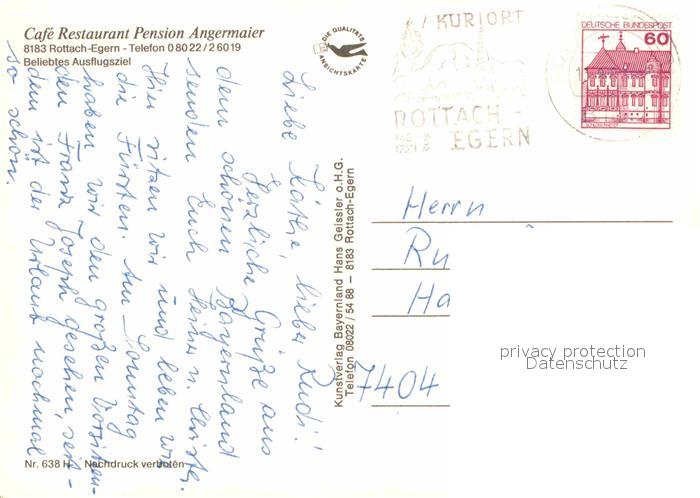 Café Restaurant Pension Angermaier
8183 Rottach-Egern - Telefon 0 80 22 / 2 60 19
Beliebtes Ausflugsziel
DIE QUALITÄTS
ANSICHTSKARTE
KURORT
ROTTACH-
EGERN
DEUTSCHE BUNDESPOST
60
Liebe Käthe, lieber Rudi!
Herzliche Grüße aus
dem schönen Bayernland
senden Euch Heiner u. Christa.
Hier sitzen wir und leben wie
die Fürsten. Am Sonntag
haben wir den großen Vorsitzen-
den Franz Joseph gesehen, seit-
dem ist der Urlaub nochmal
so schön.
Kunstverlag Bayernland Hans Geissler o.H.G.
Telefon 08022 / 54 88 – 8183 Rottach-Egern
Herrn
Ru
Ha
7404
privacy protection
Datenschutz
Nr. 638 H Nachdruck verboten